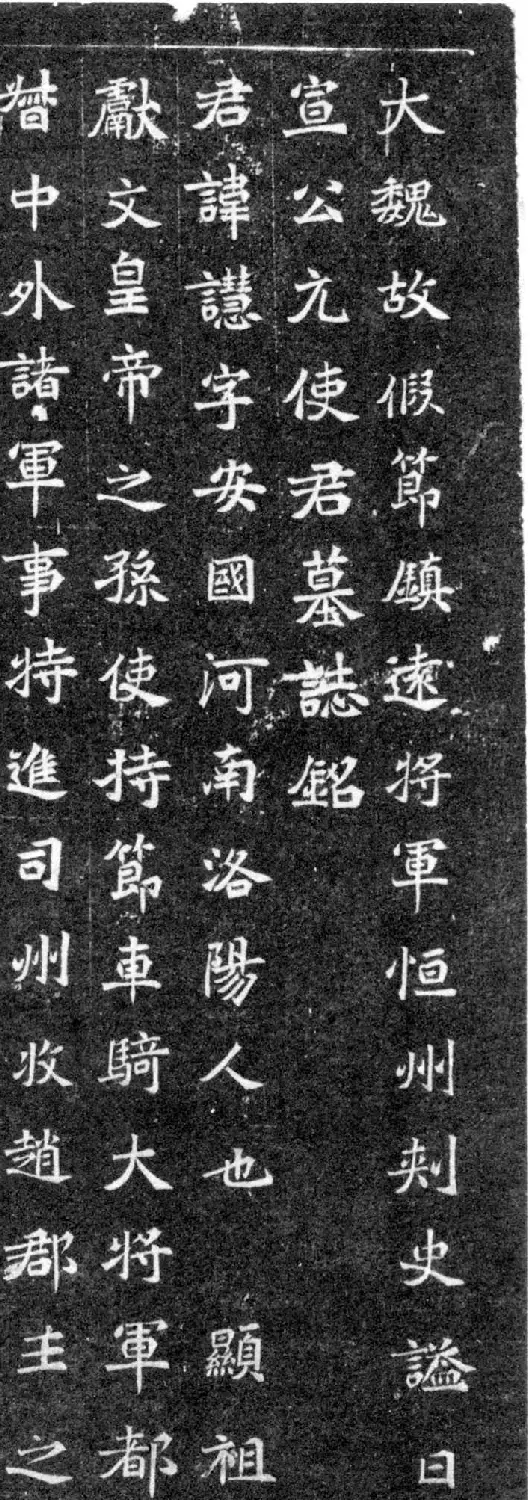 大魏故假節鎮遠將軍恒州刾史謚曰
宣公元使君墓誌銘
君諱譿字安國河南洛陽人也 顯祖
獻文皇帝之孫使持節車騎大將軍都
督中外諸軍事特進司州牧趙郡王之